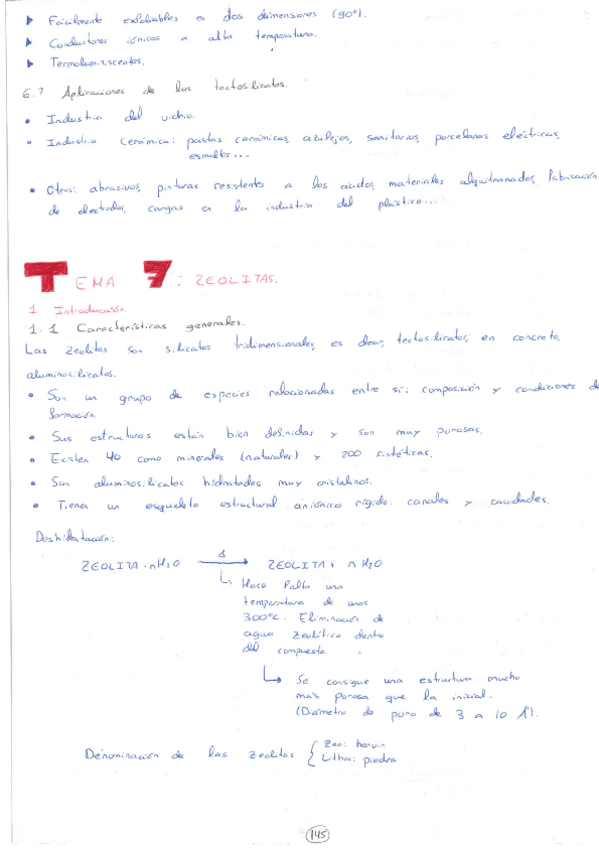 ▶ Facilmente exfoliables en dos dimensiones (90°).
▶ Conductores iónicos a alta temperatura.
▶ Termoluminiscentes.
6.7 Aplicaciones de los tectosilicatos.
• Industria del vidrio.
• Industria cerámica: pastas cerámicas, azulejos, sanitarios, porcelanas eléctricas,
esmaltes...
• Otros: abrasivos, pinturas resistente a los ácidos, materiales alquitranados, fabricación
de electrodos, cargas en la industria del plástico...
TEMA 7: ZEOLITAS.
1 Introducción
1.1 Características generales.
Las zeolitas son silicatos tridimensionales, es decir, tectosilicatos; en concreto,
aluminosilicatos.
• Son un grupo de especies relacionadas entre sí: composición y condiciones de
formación.
• Sus estructuras están bien definidas y son muy porosas.
• Existen 40 como minerales (naturales) y 200 sintéticas.
• Son aluminosilicatos hidratados muy cristalinos.
• Tienen un esqueleto estructural aniónico rígido: canales y cavidades.
Deshidratación:
ZEOLITA · nH2O → ZEOLITA + nH2O
Hace falta una
temperatura de unos
300°C. Eliminación de
agua zeolítica dentro
del compuesto.
Se consigue una estructura mucho
más porosa que la inicial.
(Diámetro de poro de 3 a 10 Å).
Denominación de las zeolitas { Zeo: hervir
Lithos: piedra
145